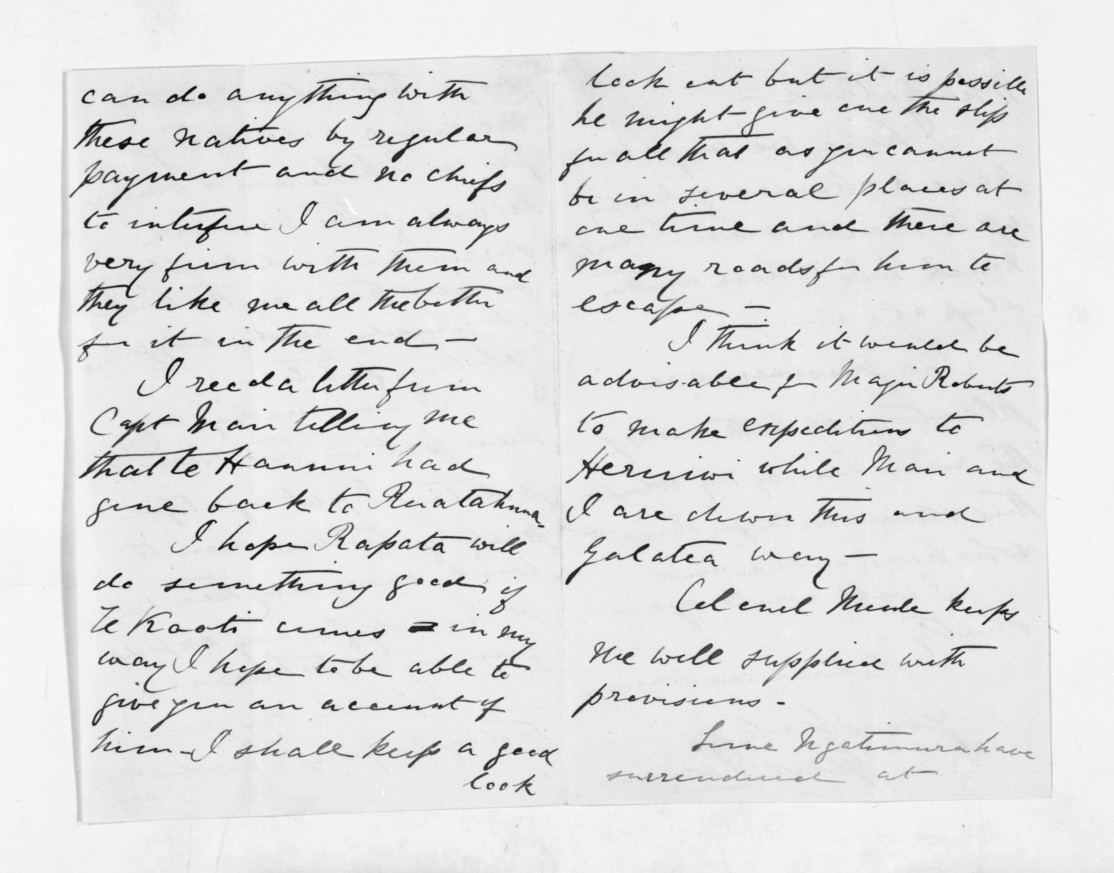 can do anything with
these natives by regular
payment and no chiefs
to interfere I am always
very firm with them and
they like me all the better
for it in the end —
I recd a letter from
Capt Mair telling me
that te Haunui had
gone back to Ruatahuna
I hope Rapata will
do something good, if
Te Kooti comes in my
way I hope to be able to
give you an account of
him — I shall keep a good
look
look out but it is possible
he might give one the slip
for all that as you cannot
be in several places at
one time and there are
many roads for him to
escape —
I think it would be
advisable for Major Roberts
to make expeditions to
Heruiwi while Mair and
I are down this and
Galatea way —
Colonel Moule keeps
me well supplied with
provisions —
Some Ngatimura have
surrendered at